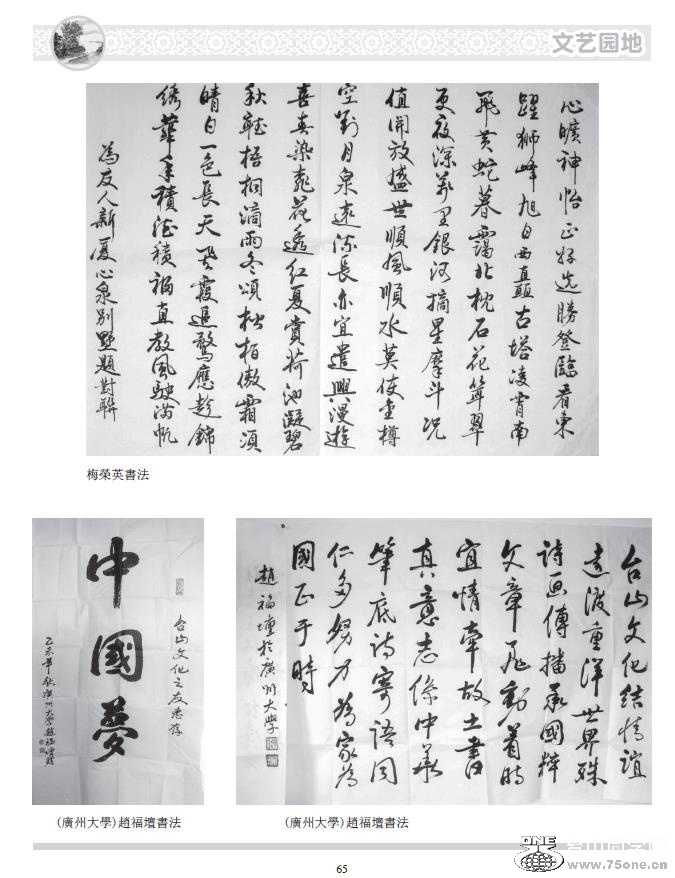 文艺园地
心曠神怡正好選勝登臨看東
躍獅峰旭日西直顯古塔凌霄南
飛黃蛇暮靄北枕石花聳翠
更夜深萬里銀河摘星摩斗況
值開放盛世順風順水莫使金樽
空對月泉遠流長亦宜遣興漫遊
喜春染花透紅夏賞荷池凝碧
秋聽梧桐滴雨冬頌松柏傲霜須
晴日一色長天飛霞追鶩應趁錦
綉華年積德積福直教風駛滿帆
為友人新廈心泉別墅題對聯
梅榮英書法
台山文化之友惠存
中國夢
乙未年秋廣州大學趙福壇贈
(廣州大學)趙福壇書法
台山文化結情誼
遠渡重洋世界殊
詩画傳播承國粹
文章飛動着時
宜情牽故土書
真意志係中華
筆底詩寄語同
仁多努力為家為
國正于時
趙福壇於廣州大學
(廣州大學)趙福壇書法
ONE
www.75one.cn
65